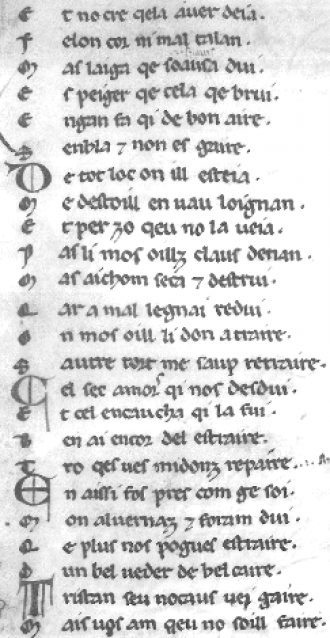 E t no cre qela auer deia.
F elon cor ni mal talan.
M as laiga qe soausa dui.
E s peiger qe cela qe brui.
E ngan fa qi de bon aire.
S enbla 7 non es gaire.
D e tot loc on ill esteia.
M e destoill en uau loignan.
E t per zo qeu no la ueia.
P as li mos oillz claus denan.
M as aichom secs 7 destrui.
Q ar a mal legnai redui.
O n mos oill li don atraire.
S autre tort me saup retraire.
C el sec amors qi nos desdui.
E t cel encaucha qi la fui.
B en ai encor del estraire.
T ro qes ues midonz repaire.
E n aissi fos pres com ge soi.
M on aluernaz 7 foram dui.
Q e plus nos pogues estraire.
D un bel ueder de bel caire.
T ristan seu nocaus uej gaire.
M ais uos am qeu no soill faire.